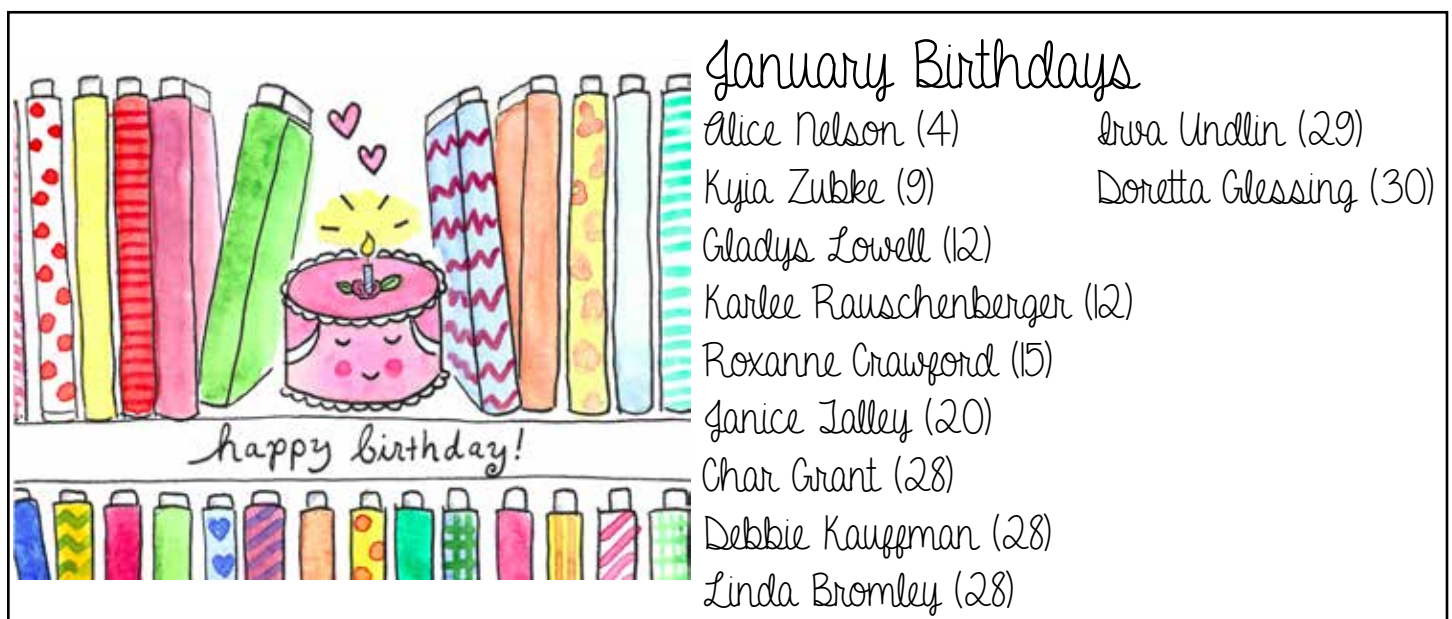 happy birthday!
January Birthdays
Alice Nelson (4)
Kyia Zubke (9)
Gladys Lowell (12)
Karlee Rauschenberger (12)
Roxanne Crawford (15)
Janice Talley (20)
Char Grant (28)
Debbie Kauffman (28)
Linda Bromley (28)
Irva Undlin (29)
Doretta Glessing (30)